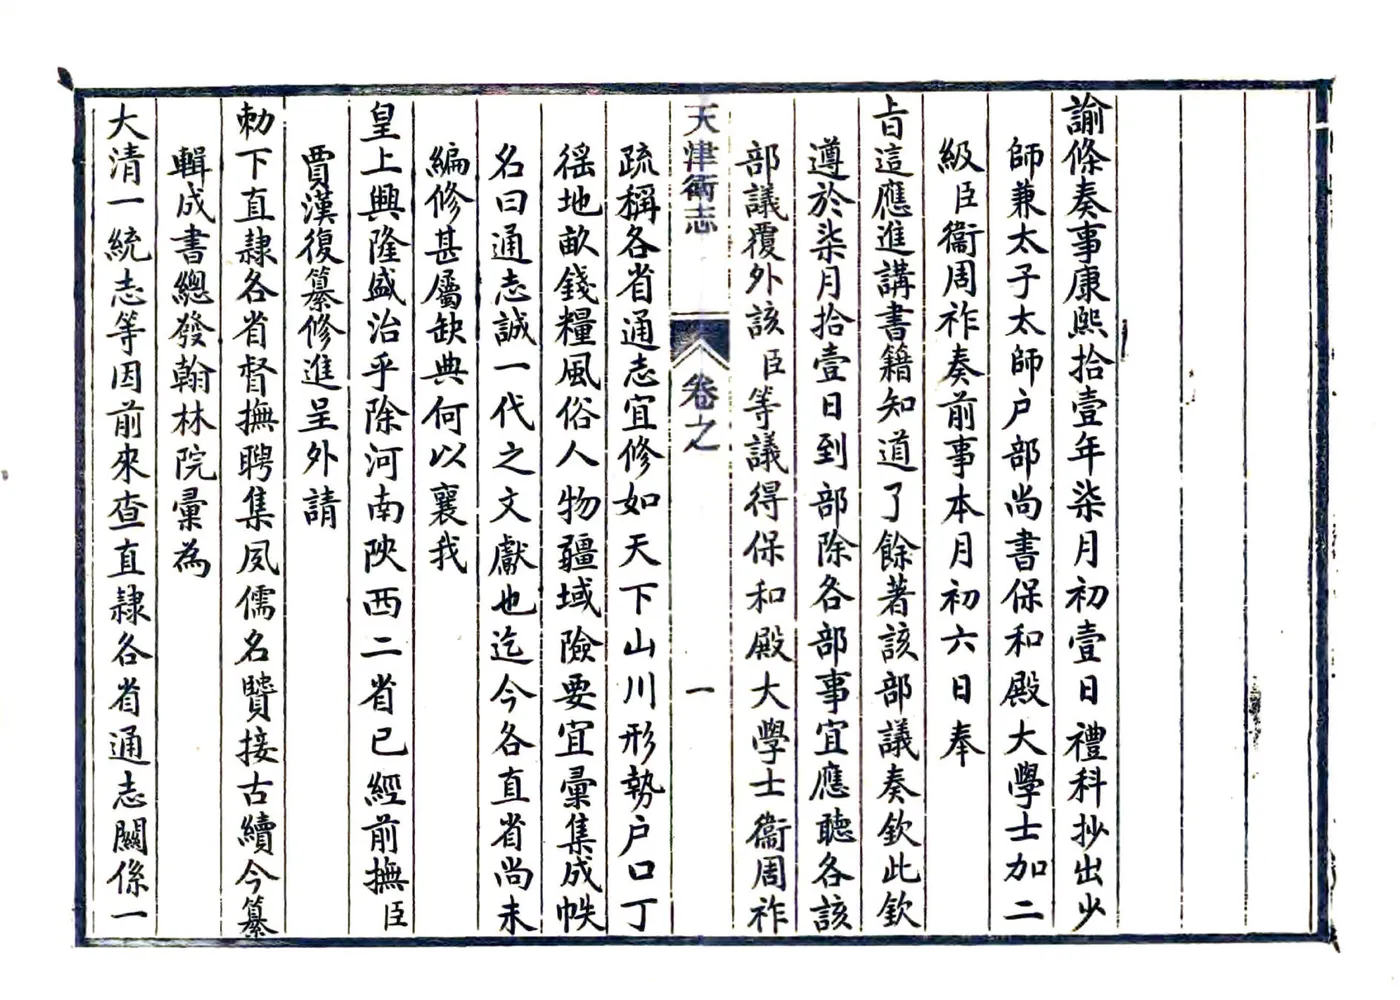 諭條奏事康熙拾壹年柒月初壹日禮科抄出少
師兼太子太師户部尚書保和殿大學士加二
級臣衞周祚奏前事本月初六日奉
㫖這應進講書籍知道了餘著該部議奏欽此欽
遵於柒月拾壹日到部除各部事宜應聽各該
部議覆外該臣等議得保和殿大學士衞周祚
天津衛志
卷之
一
疏稱各省通志宜修如天下山川形勢户口丁
徭地畝錢糧風俗人物疆域險要宜彙集成帙
名曰通志誠一代之文獻也迄今各直省尚未
編修甚屬缺典何以襄我
皇上興隆盛治乎除河南陜西二省已經前撫臣
賈漢復纂修進呈外請
勅下直隷各省督撫聘集夙儒名贒接古續今纂
輯成書總發翰林院彙為
大清一統志等因前來查直隷各省通志關係一